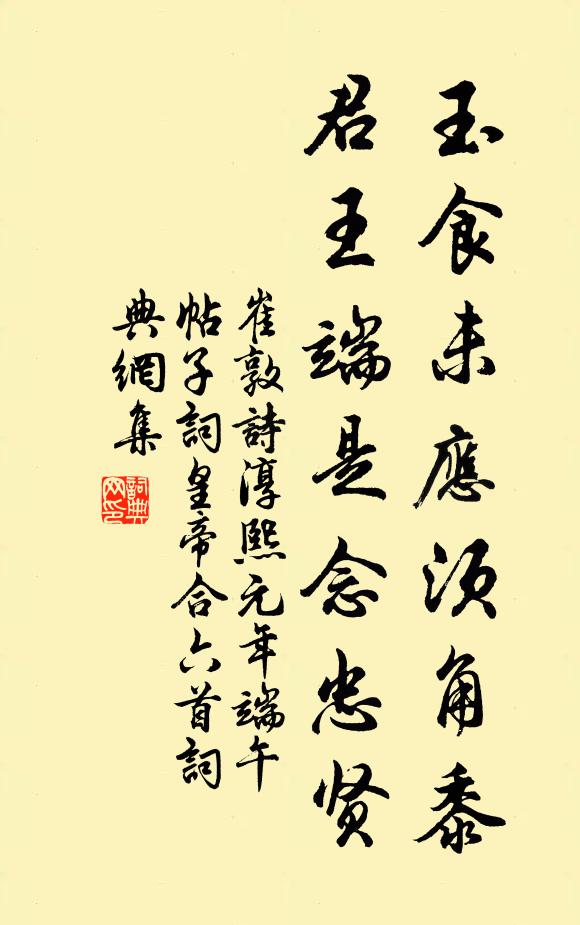 玉食未應須角黍
君王端是念忠贤
崔敦詩淳熙元年端午
帖子詞皇帝合六首詞
典網集
詞典网印